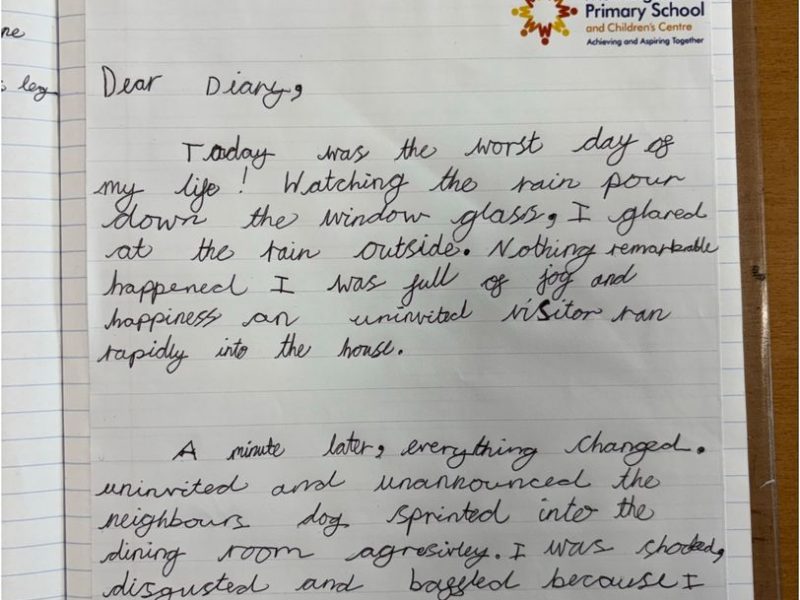 ne
leg
Primary School
and Children's Centre
Achieving and Aspiring Together
Dear Diary,
Today was the worst day of
my life! Watching the rain pour
down the window glass, I glared
at the rain outside. Nothing remarkable
happened I was full of joy and
happiness an uninvited visitor ran
rapidly into the house.
A minute later, everything changed.
uninvited and unannounced the
neighbours dog sprinted into the
dining room agresivley. I was shocked,
disgusted and baffled because I